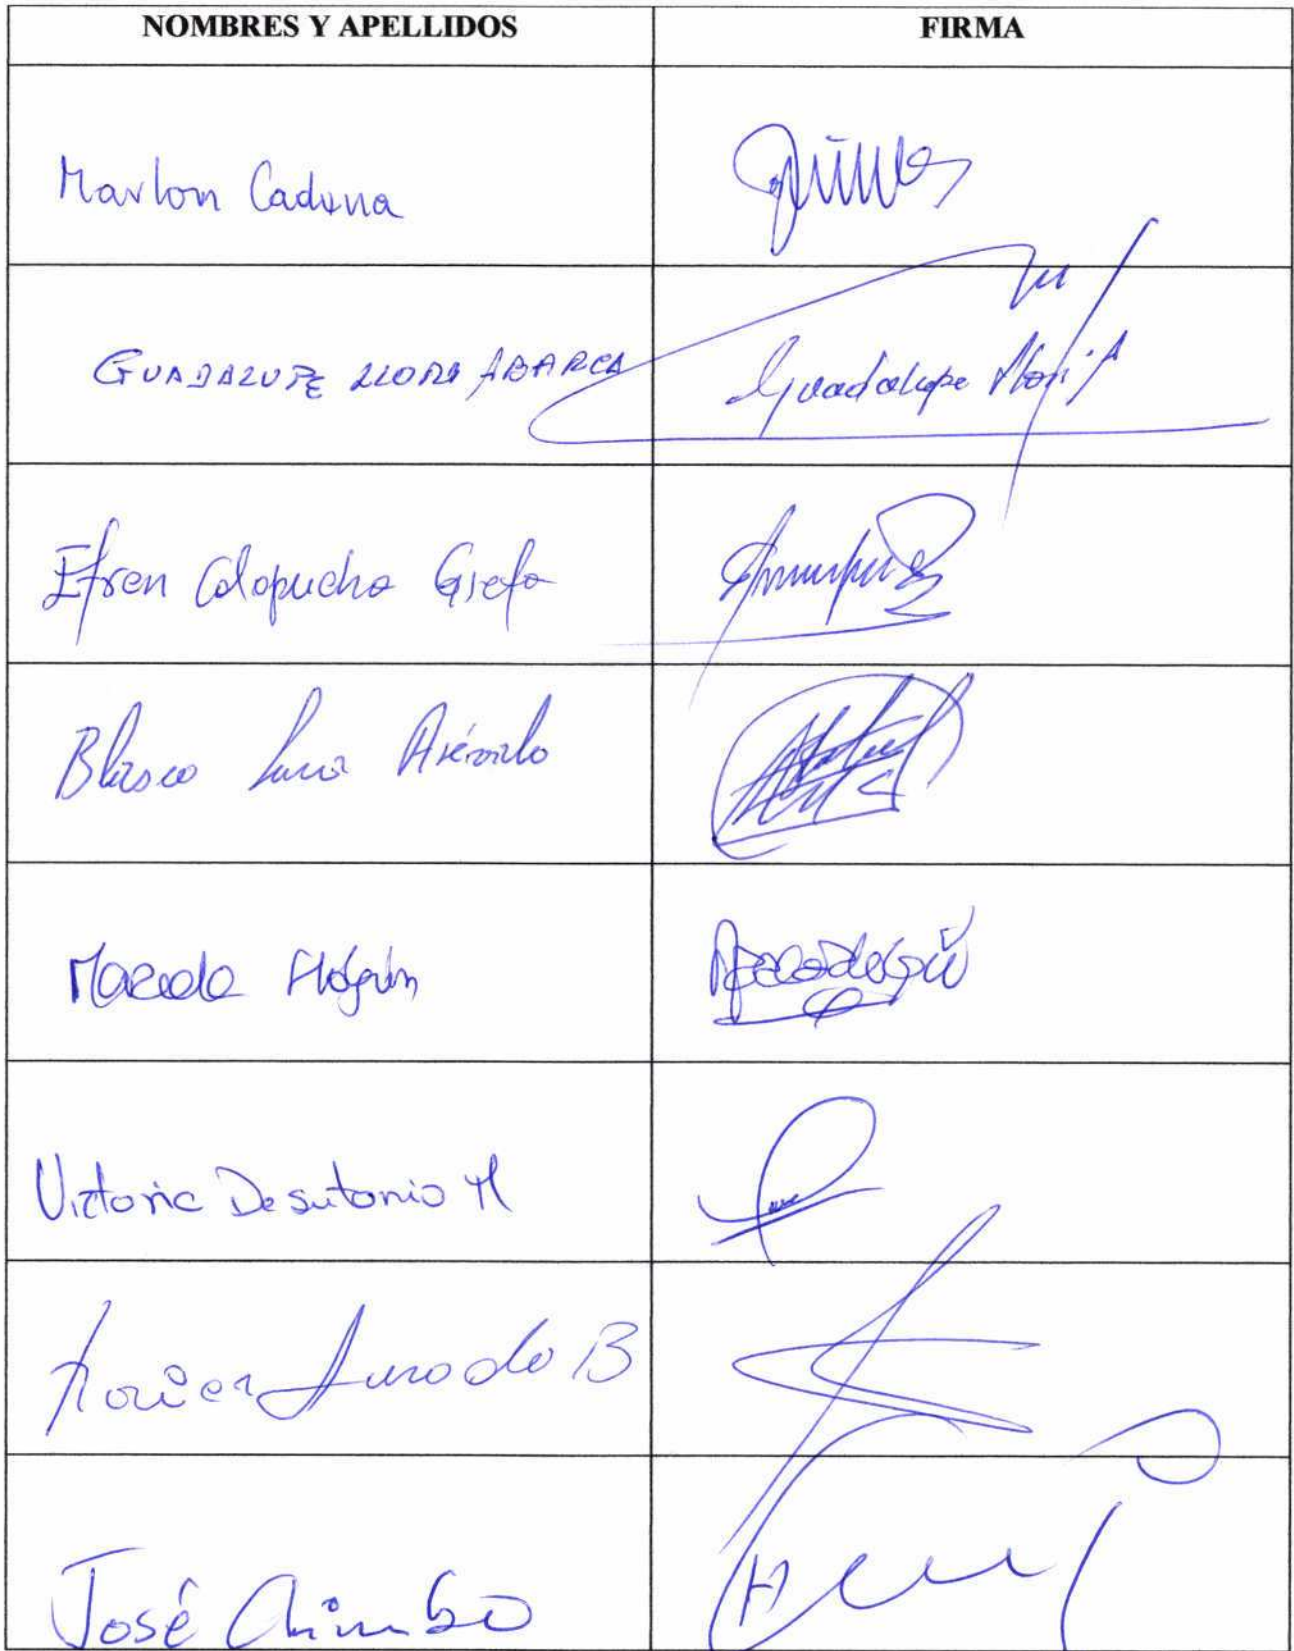 NOMBRES Y APELLIDOS FIRMA
Marlon Cadena
GUADALUPE LLORI ABARCA Guadalupe Llori A
Efren Calapucha Grefa
Blasco Luna Arévalo
Marcelo Holguín
Victoria Desintonio M
Xavier Jurado B
José Chimbo